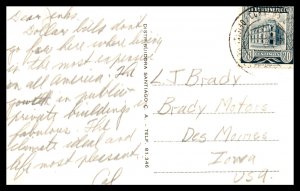 Dear Jenks.
Dollar bills don't
go far here where living
is the most expensive
in all america. The
youth in public
private buildings is
fabulous. The
climate ideal and
life most pleasant.
Cal
DISTRIBUIDOR: SANTIAGO C. A. - TELF. 91.346
L J Brady
Brady Motors
Des Moines
Iowa
USA.